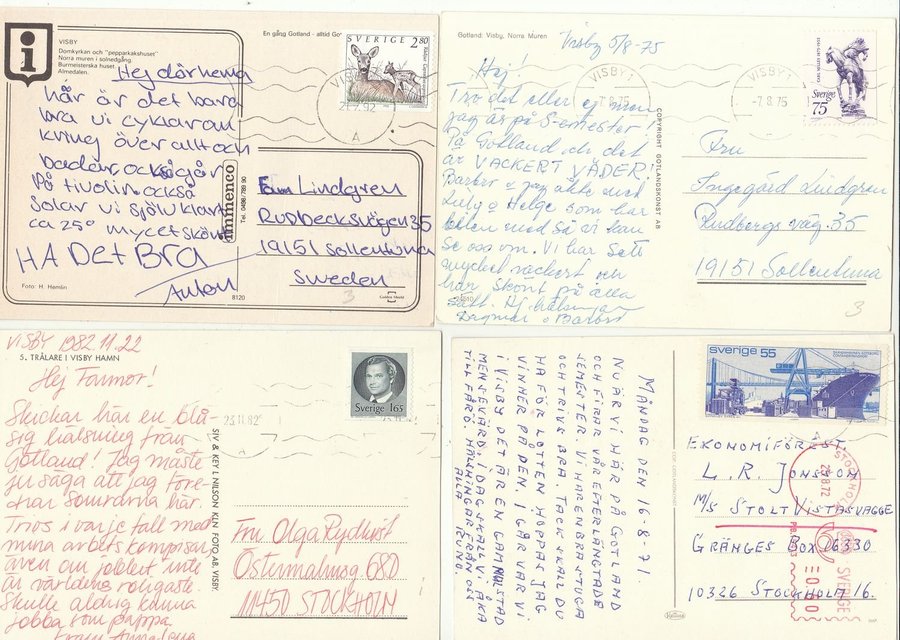 VISBY
Domkyrkan och "pepparkakshuset"
Norra muren i solnedgång.
Burmeisterska huset i
Almedalen.
En gång Gotland - alltid Got
SVERIGE 2.80
VISBY
A
Hej därhema
här är det bara
bra vi cyklaran
kring överallt och
badar, också går
På tivolin också
Solar vi självklart
ca 25° mycet skönt
HA Det BrA
Anton
immenco
Tel. 0498/789 90
Fam Lindgren
Rudbecksvägen 35
19151 Sollentuna
Sweden
Foto: H. Hemlin
8120
Golden Shield
3
Gotland: Visby, Norra Muren
Visby 5/8-75
VISBY 1
-7.8.75
VISBY 1
-7.8.75
Sverige
75
Hej!
Tro det eller ej men
jag är på S-emester
På Gotland och det
är VACKERT VÄDER!
Barbro o jag åkte med
Luly o Helge som har
bilen med så vi kan
se oss om. Vi har sett
mycket vackert och
har skönt på alla
sätt. Hj hälsningar
Dagmar o Barbro
COPYRIGHT GOTLANDSKONST AB
Fru
Ingegärd Lindgren
Rudbergs väg. 35
19151 Sollentuna
3
VISBY 1982.11.22
5. TRÅLARE I VISBY HAMN
Hej Farmor!
Skickar här en blå-
sig hälsning från
Gotland! Jag måste
ju säga att jag före-
drar somrarna här.
Trivs i varje fall med
mina arbetskompisar,
även om jobbet inte
är världens roligaste.
Skulle aldrig kunna
jobba som pappa.
Sverige 165
23.11.82
SIV & KEY L NILSON KLN FOTO AB, VISBY.
Fru Olga Rydkvist
Östermalmsg 68
11450 STOCKHOLM
MÅNDAG DEN 16-8-71.
NU ÄR VI HÄR PÅ GOTLAND
OCH FIRAR VÅR EFTERLÄNGTADE
SEMESTER. VI HAR EN BRA STUGA
OCH TRIVS BRA. TACK SKALL DU
HA FÖR LOTTEN HOPPAS JAG
VINNER PÅ DEN. I GÅR VAR VI
I VISBY DET ÄR EN GAMMAL STAD
MEN SEVÄRD. I DAG SKALL VI ÅKA
TILL FÅRÖ. HÄLSNINGAR FRÅN OSS
ALLA
sverige 55
EKONOMIFÖREST.
L. R. JONSSON
M/S STOLT VISTASVAGGE
GRÄNGES BOX 16330
10326 STOCKHOLM 16.
STOCKHOLM
SVERIGE